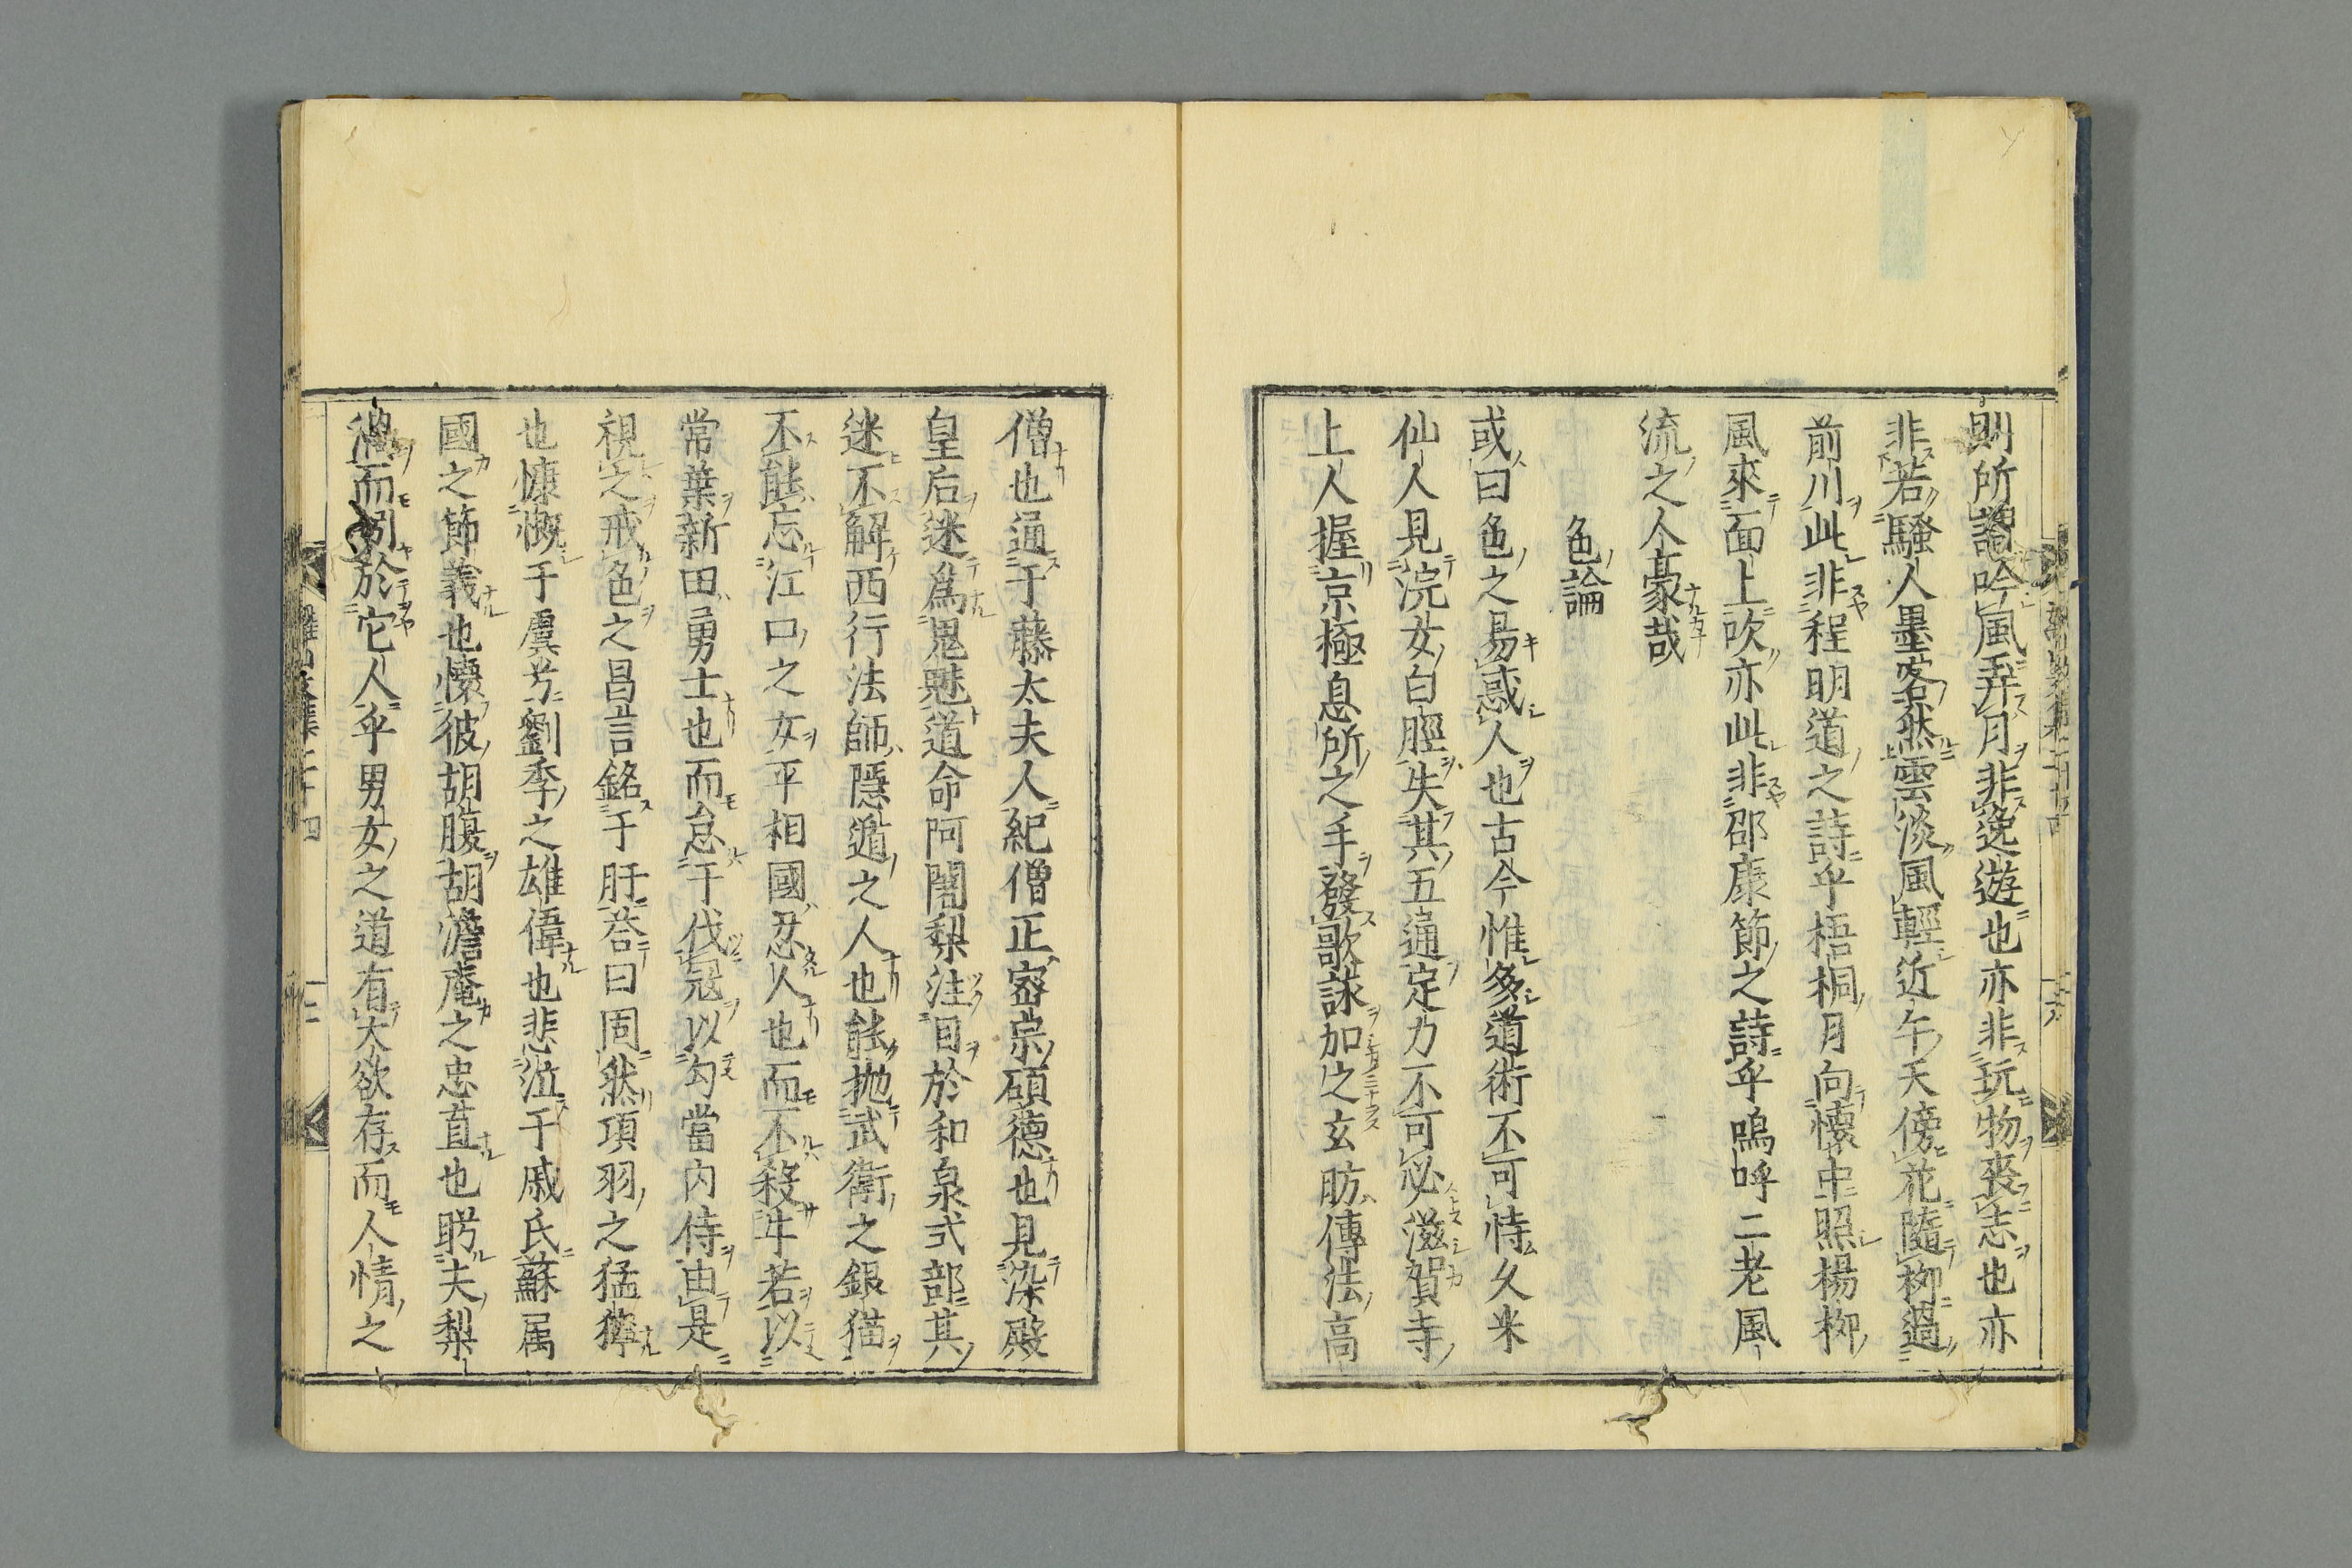 則所謂吟風弄月非逸遊也亦非玩物喪志也亦
非若騷人墨客然雲淡風輕近午天傍花隨柳過
前川此非程明道之詩乎梧桐月向懷中照楊柳
風來面上吹亦此非邵康節之詩乎嗚呼二老風
流之人豪哉
色論
或曰色之易惑人也古今惟多道術不可恃久米
仙人見浣女白脛失其五通定力不可必滋賀寺
上人握京極息所之手發歌詠加之玄昉傳法高
僧也通于藤太夫人紀僧正密宗碩德也見染殿
皇后迷為鬼魅道命阿闍梨注目於和泉式部其
迷不解西行法師隱遁之人也能抛武衛之銀猫
不能忘江口之女平相國忍人也而不殺牛若以
常葉新田勇士也而怠于伐冦以勾當內侍由是
視之戒色之昌言銘于肝荅曰固然項羽之猛獰
也慷慨于虞兮劉季之雄偉也悲泣于戚氏蘇属
國之節義也懷彼胡腹胡澹庵之忠直也眄夫梨
渦而矧於它人乎男女之道有大欲存而人情之